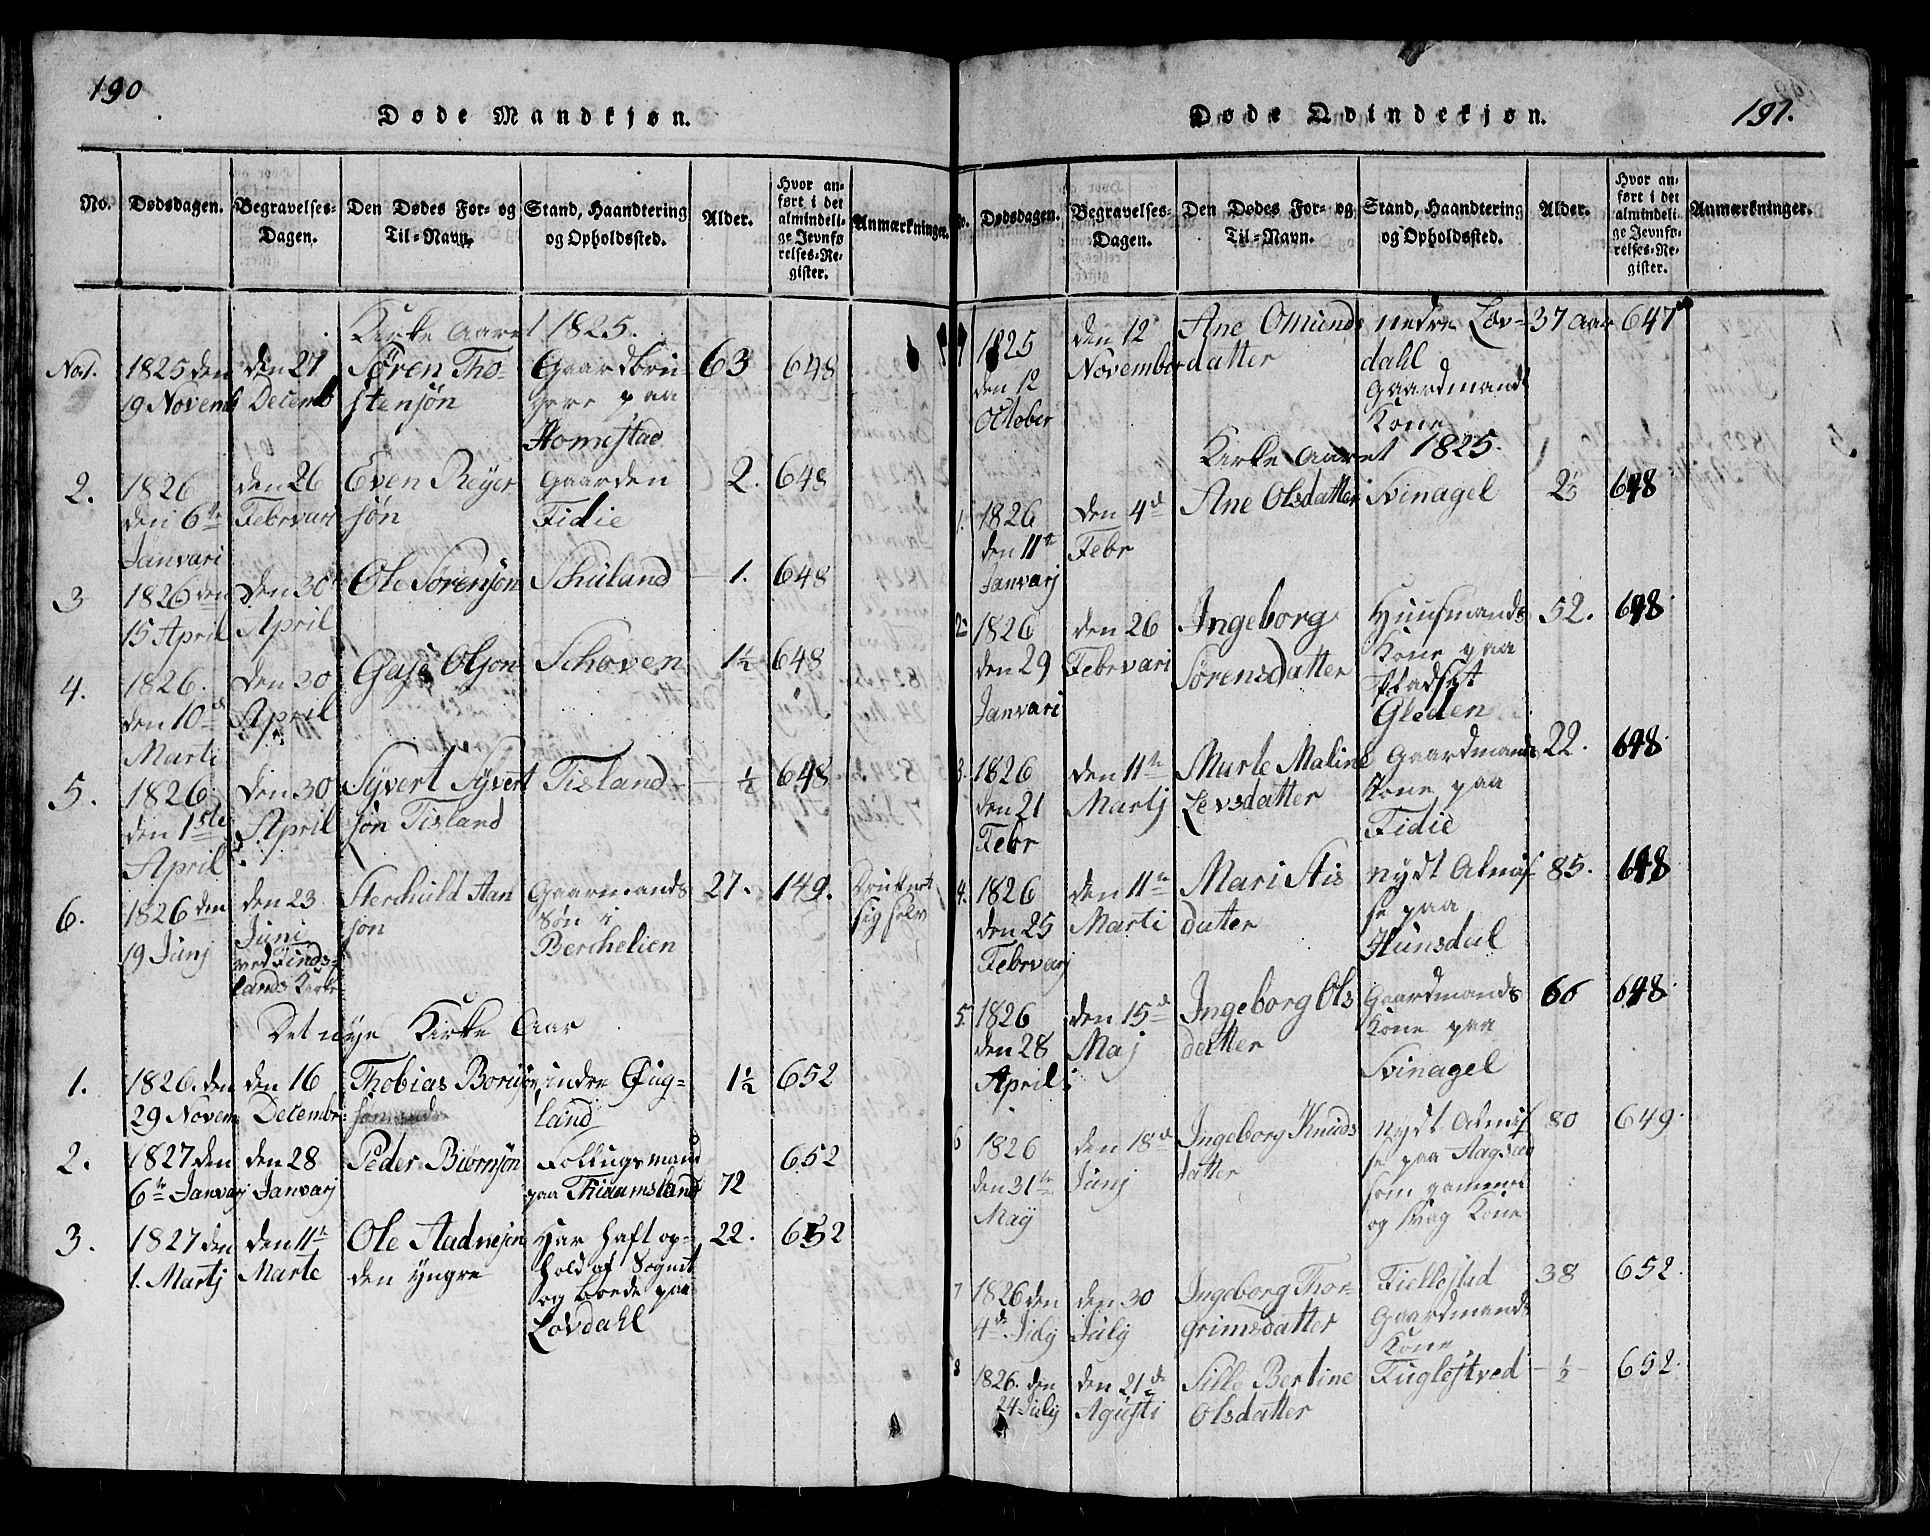 190
Døde Mandkjøn.
No.
Dødsdagen.
Begravelses-
Dagen.
Den Dødes For- og
Til-Navn.
Stand, Haandtering
og Opholdssted.
Alder.
Hvor an-
ført i det
almindeli-
ge Jevnfø
relses-Re-
gister.
Anmærkninger.
Kirke Aaret 1825.
No 1.
1825 den
19 Novemb
den 27
Decemb
Søren Tho-
stensøn
Gaardbru-
gere paa
Homestad
63
648
2.
1826
den 6te
Janvari
den 26
Februari
Even Reyer
søn
Gaarden
Fidie
2.
648
3
1826 den
15 April
den 30
April
Ole Sørensøn
Schuland
1.
648
4.
1826.
den 10d
Marti
den 30
April
Olson
Schoven
1½
648
5.
1826
den 1ste
April
den 30
April
Syvert Syvert
søn Tisland
Tisland
½
648
6.
1826 den
19 Junj
den 23
Juni
ved Finds-
lands Kirke
Aan
søn
Gaarmands
Søn i
Berchelien
27.
149.
Druknet
sig selv
Det nÿe Kirke Aar
1.
1826. den
29 Novem
den 16
Decembr
Thobias
indre Øug-
land
1½
652
2.
1827 den
6te Janvarj
den 28
Janvarj
Peder Biørnsøn
Follugsmand
paa
72
652
3.
1827 den
1. Martj
den 11te
Marte
Ole Aadnesøn
den Yngre
Har haft op-
hold af Sognet
og boede paa
Løvdahl
22.
652
191.
Døde Qvindekjøn.
No.
Dødsdagen.
Begravelses-
Dagen.
Den Dødes For- og
Til-Navn.
Stand, Haandtering
og Opholdssted.
Alder.
Hvor an-
ført i det
almindeli-
ge Jevnfø-
relses-Re-
gister.
Anmærkninger.
1825
den 12
October
den 12
November
Ane Omunds
datter
nedre Løv-
dahl
Gaardmands
Kone
37 Aar
647
Kirke Aaret 1825.
1.
1826
den 11te
Janvarj
den 4d
Febr
Ane Olsdatter
Svinagel
648
2
1826
den 29
Janvari
den 26
Febrvari
Ingeborg
Sørensdatter
Huusmands
Kone paa
Pladset
Gleden
52.
648
3.
1826
den 21
Febr
den 11te
Martj
Marte Maline
Levsdatter
Gaardmands
Kone paa
Fidie
22.
648
4.
1826
den 25
Febrvarj
den 11te
Marti
Mari Stis
datter
nydt Almis
se paa
Hunsdal
85.
648
5.
1826
den 28
April
den 15d
Maj
Ingeborg Ols
datter
Gaardmands
Kone paa
Svinagel
66
648
6
1826
den 31te
Maÿ
den 18d
Junj
Ingeborg Knuds
datter
nydt Almis
se paa
som gammel
og svag Kone
80
649
7
1826 den
4de July
den 30
July
Ingeborg Thor-
grimsdatter
Fiellestad
Gaardmands
Kone
38
652.
8
1826. den
24 July
den 21de
Agusti
Sille Bertine
Olsdatter
Fuglestved
½
652.